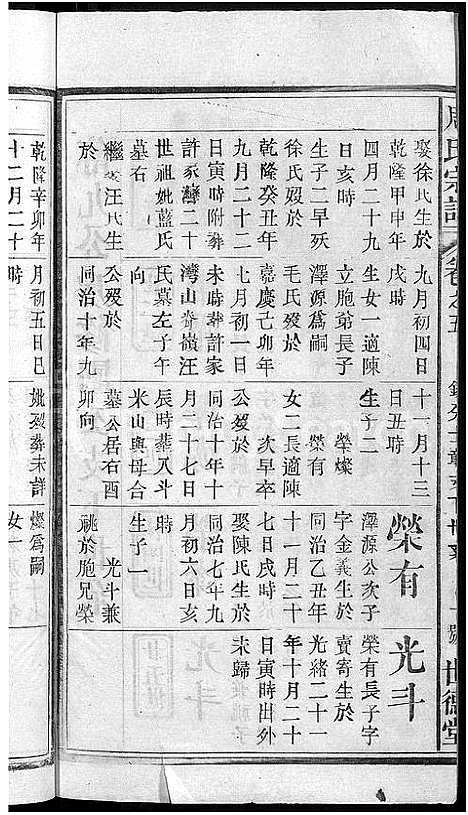 周氏宗譜
卷之五
世德堂
娶徐氏生於
乾隆甲申年
四月二十九
日亥時
生子二早殀
徐氏歿於
乾隆癸丑年
九月二十二
日寅時附葬
許家灣二十
世祖妣藍氏
墓右
繼娶汪氏生
於
九月初四日
戌時
生女一適陳
立胞弟長子
澤源爲嗣
嘉慶己卯年
七月初一日
未時葬許家
灣山脊嶺汪
氏墓左子午
向
公歿於
同治十年九
十一月十三
日丑時
生子二
榮燦
榮有
女二長適陳
次早卒
公歿於
同治十年十
月二十七日
辰時葬八斗
米山與母合
墓公居右酉
卯向
榮有
澤源公次子
字金義生於
同治乙丑年
十一月二十
七日戌時
娶陳氏生於
同治九年九
月初六日亥
時
生子一
光斗兼
祧於胞兄榮
光斗
榮有長子字
賣寄生於
光緒二十一
年十月二十
日寅時出外
未歸
乾隆辛卯年
十二月二十
月初五日巳
時
妣歿葬未詳
燦爲嗣
女一